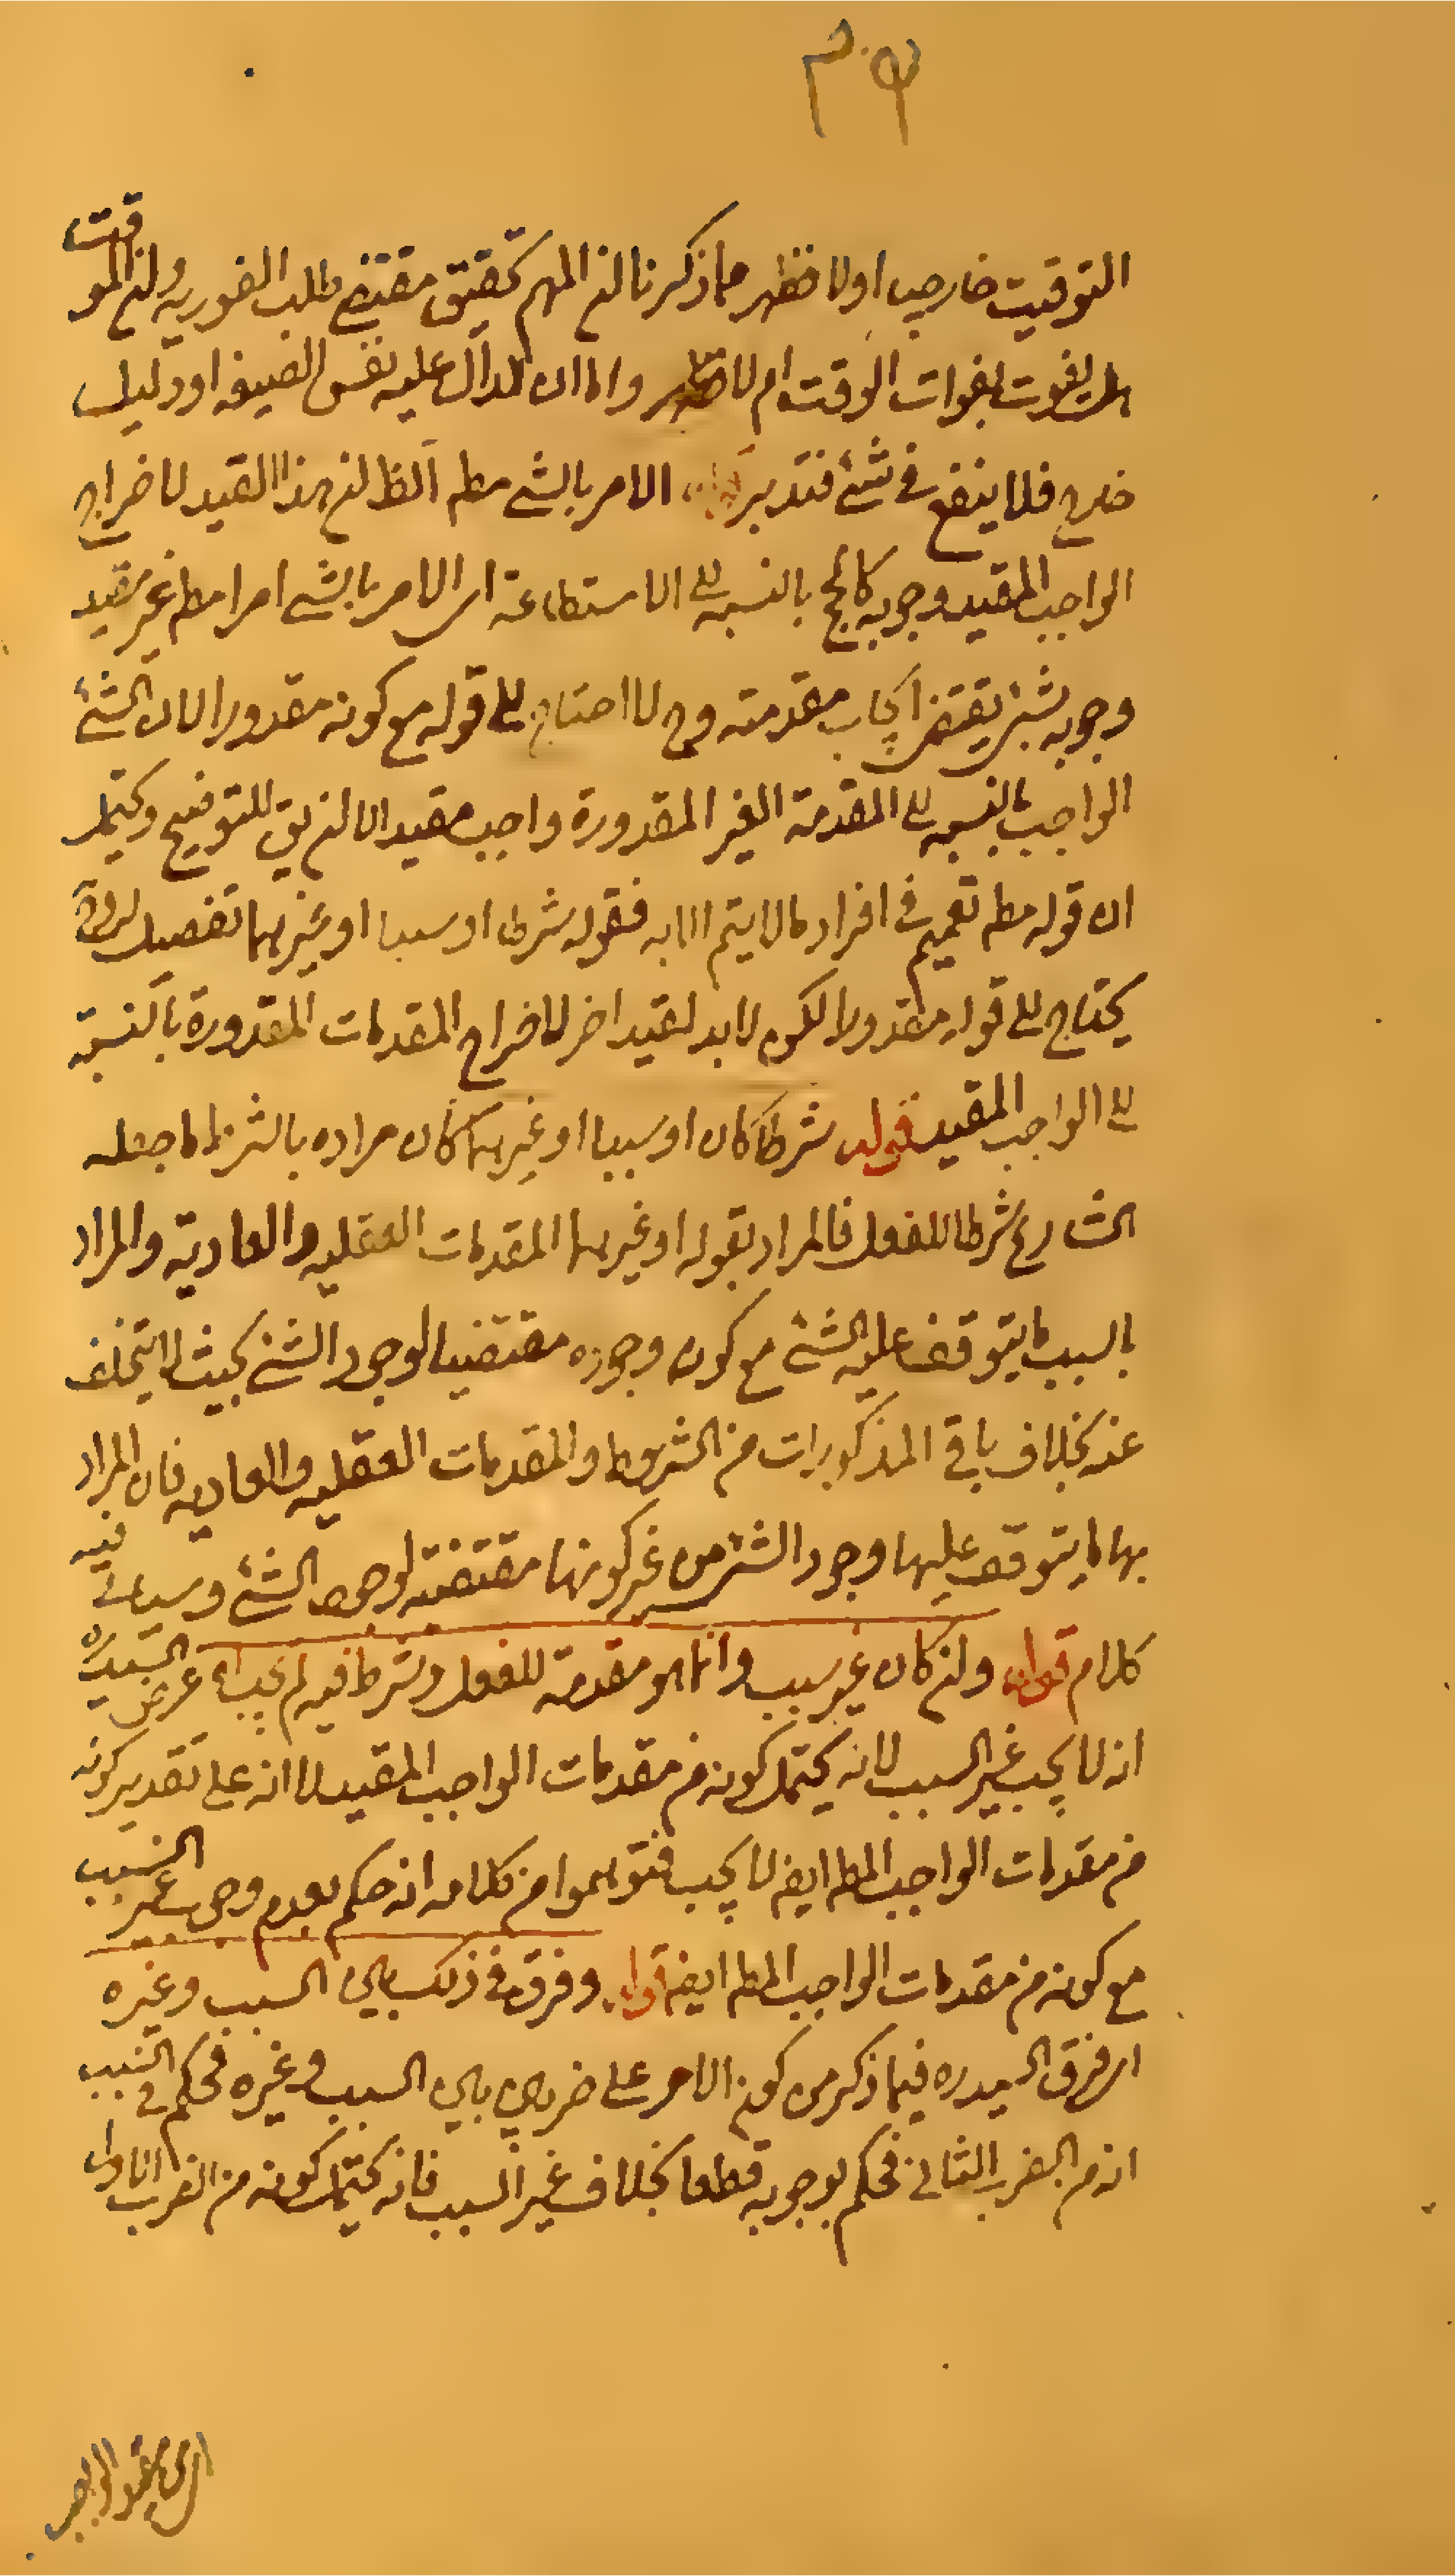 التوقيت خارجيا اولا فظهر مما ذكرنا ان المهم تحقيق مقتضى طلب الفوريه وان الموقت
هل يفوت بفوات الوقت ام لا واما ان الدال عليه نفس الصيغه او دليل
خارج فلا ينفع فى شئ فتدبر قوله الامر بالشئ مطم الظ ان هذا القيد لاخراج
الواجب المقيد وجوبه كالحج بالنسبه الى الاستطاعة اى الامر بالشئ امرا مطم غير مقيد
وجوبه بشئ يقتضى ايجاب مقدمته وح لا احتاج الى قوله مع كونه مقدورا لان الشئ
الواجب بالنسبه الى المقدمة الغير المقدورة واجب مقيد الا ان يق للتوضيح ويحتمل
ان قوله مطم تعميم فى افراد ما لا يتم الا به فقوله شرطا او سببا او غيرهما تفصيل له وح
يحتاج الى قوله مقدورا لكن لا بد لقيد اخر لاخراج المقدمات المقدورة بالنسبة
الى الواجب المقيد قوله شرطا كان او سببا او غيرهما كان مراده بالشرط ما جعله
الشارع شرطا للفعل فالمراد بقوله او غيرهما المقدمات العقليه والعادية والمراد
بالسبب ما يتوقف عليه الشئ مع كون وجوده مقتضيا لوجود الشئ بحيث لا يتخلف
عنه بخلاف باقى المذكورات من الشروط والمقدمات العقليه والعاديه فان المراد
بها ما يتوقف عليها وجود الشئ من غير كونها مقتضية لوجود الشئ وسياتى فيه
كلام قوله وان كان غير سبب وانما هو مقدمة للفعل وشرط فيه لم يجب اه غرض السيد ره
انه لا يجب غير السبب لانه يحتمل كونه من مقدمات الواجب المقيد لا انه على تقدير كونه
من مقدمات الواجب المطم ايض لا يجب فتوهموا من كلامه انه حكم بعدم وجوب غير السبب
مع كونه من مقدمات الواجب المطم ايض قوله وفرق فى ذلك بين السبب وغيره
اى فرق السيد ره فيما ذكر من كون الامر على ضربين بين السبب وغيره فحكم فى السبب
انه من الضرب الثانى فحكم بوجوبه قطعا بخلاف غير السبب فانه يحتمل كونه من الضرب الاول